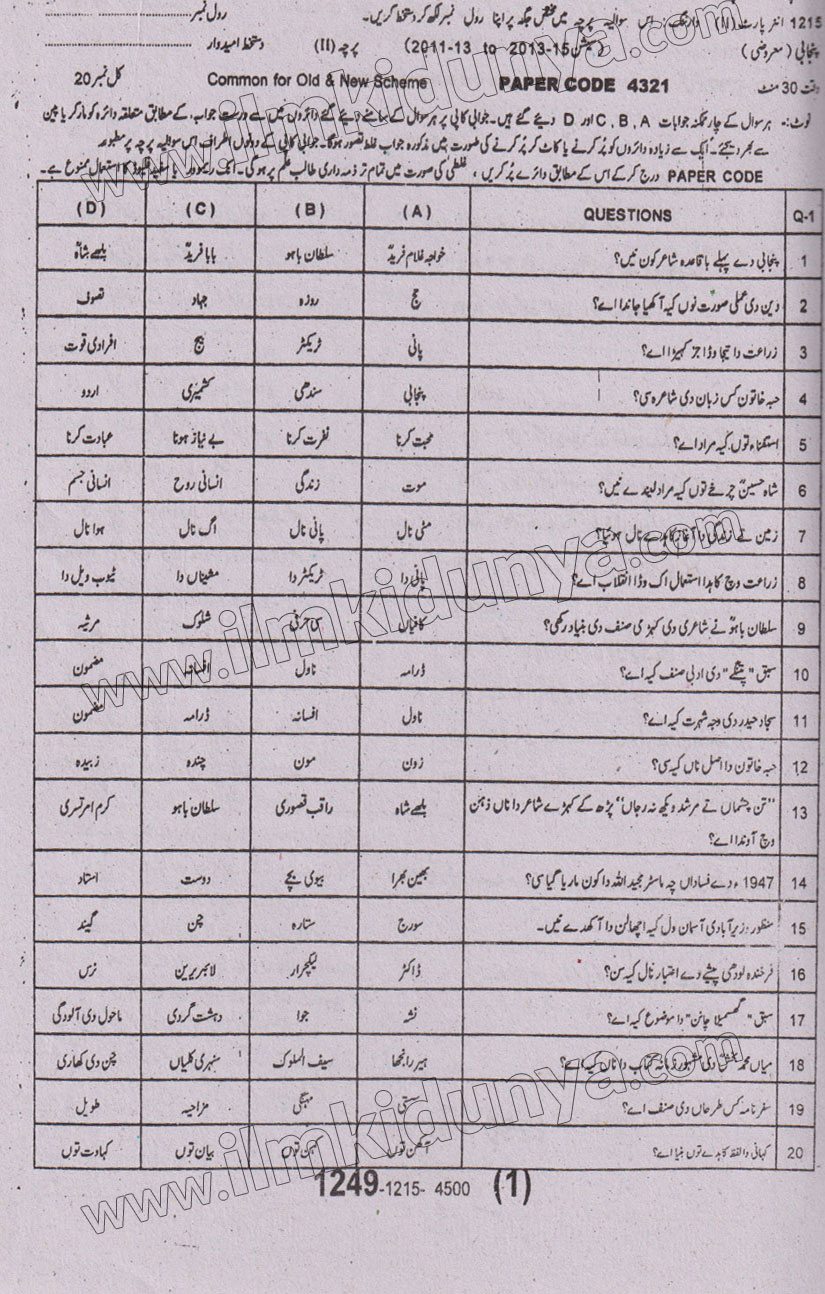 1215 انٹر پارٹ (II) وارننگ:۔ اس سوالیہ پرچہ میں مختص جگہ پر اپنا رول نمبر لکھ کر دستخط کریں۔ رول نمبر
پنجابی (معروضی) (سیشن 2011-13 to 2013-15) پرچہ (II) دستخط امیدوار
وقت 30 منٹ PAPER CODE 4321 Common for Old & New Scheme کل نمبر 20
نوٹ:۔ ہر سوال کے چار ممکنہ جوابات A ,B ,C اور D دیئے گئے ہیں۔ جوابی کاپی پر ہر سوال کے سامنے دیئے گئے دائروں میں سے درست جواب کے مطابق متعلقہ دائرہ کو مارکر یا پین
سے بھر دیجئے۔ ایک سے زیادہ دائروں کو پُر کرنے یا کاٹ کر پُر کرنے کی صورت میں مذکورہ جواب غلط تصور ہوگا۔ جوابی کاپی کے دونوں اطراف اس سوالیہ پرچہ پر مطبوعہ
PAPER CODE درج کر کے اس کے مطابق دائرے پُر کریں، غلطی کی صورت میں تمام تر ذمہ داری طالب علم پر ہوگی۔ انک ریموور یا سفید فلیوڈ کا استعمال ممنوع ہے۔
Q-1 QUESTIONS (A) (B) (C) (D)
1 پنجابی دے پہلے باقاعدہ شاعر کون نیں؟ خواجہ غلام فریدؒ سلطان باہو بابا فریدؒ بلھے شاہؒ
2 دین دی عملی صورت نوں کیہ آکھیا جاندا اے؟ حج روزہ جہاد تصوف
3 زراعت دا تیجا وڈا جز کیہڑا اے؟ پانی ٹریکٹر بیج افرادی قوت
4 حبہ خاتون کس زبان دی شاعرہ سی؟ پنجابی سندھی کشمیری اردو
5 استغناء توں کیہ مراد اے؟ محبت کرنا نفرت کرنا بے نیاز ہونا عبادت کرنا
6 شاہ حسینؒ چرخے توں کیہ مراد لیندے نیں؟ موت زندگی انسانی روح انسانی جسم
7 زمین تے زندگی دا آغاز کاہدے نال ہوئیا؟ مٹی نال پانی نال اگ نال ہوا نال
8 زراعت وچ کاہدا استعمال اک وڈا انقلاب اے؟ پانی دا ٹریکٹر دا مشیناں دا ٹیوب ویل دا
9 سلطان باہوؒ نے شاعری دی کہڑی صنف دی بنیاد رکھی؟ کافیاں سی حرفی شلوک مرثیہ
10 سبق "پتنگے" دی ادبی صنف کیہ اے؟ ڈرامہ ناول افسانہ مضمون
11 سجاد حیدر دی وجہ شہرت کیہ اے؟ ناول افسانہ ڈرامہ مضمون
12 حبہ خاتون دا اصل ناں کیہ سی؟ زون مون چندہ زبیدہ
13 "تن چشماں تے مرشد ویکھ نہ رجاں" پڑھ کے کہڑے شاعر دا ناں ذہن بلھے شاہ راقب قصوری سلطان باہو کرم امرتسری
وچ آوندا اے؟
14 1947ء دے فساداں چہ ماسٹر مجید اللہ دا کون ماریا گیا سی؟ بھین بھرا بیوی بچے دوست استاد
15 منظور وزیر آبادی آسمان ول کیہ اچھالن دا آکھدے نیں۔ سورج ستارہ چن گیند
16 فرخندہ لودھی پیشے دے اعتبار نال کیہ سن؟ ڈاکٹر لیکچرار لائبریرین نرس
17 سبق "گھسمیلا چانن" دا موضوع کیہ اے؟ نشہ جوا دہشت گردی ماحول دی آلودگی
18 میاں محمد بخشؒ دی مشہور زمانہ کتاب دا ناں کیہ اے؟ ہیر رانجھا سیف الملوک سنہری کلیاں چن دی کھاری
19 سفر نامہ کس طرحاں دی صنف اے؟ سستی مہنگی مزاحیہ طویل
20 کہانی دا لفظ کاہدے توں بنیا اے؟ آکھن توں کہن توں بیان توں کہاوت توں
1249-1215- 4500 (1)
www.ilmkidunya.com
www.ilmkidunya.com
www.ilmkidunya.com